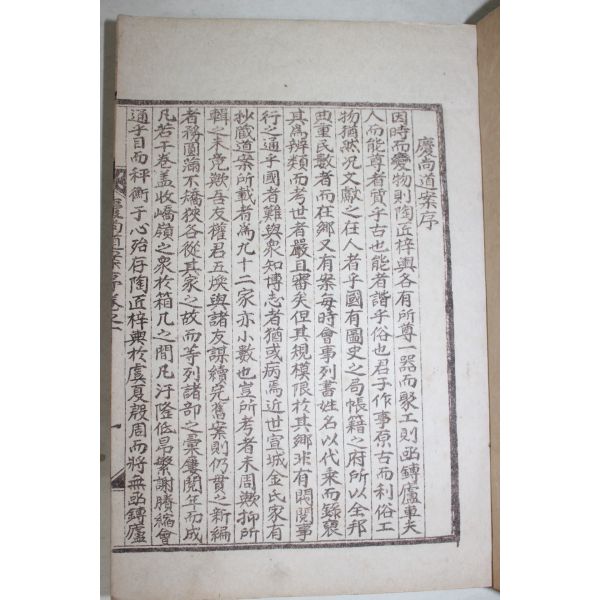 慶尚道案序
因時而變物則陶匠梓輿各有所尊一器而聚工則函鏄廬車夫
人而能尊者質乎古也能者諧乎俗也君子作事原古而利俗工
物猶然况文獻之在人者乎國有圖史之局帳籍之府所以全邦
典重民數者而在鄉又有案每時會事列書姓名以代乘而錄
其爲辨類而考世者嚴且審矣但其規模限於其鄉非有閥閱事
行之通乎國者難與衆知博志者猶或病焉近世宣城金氏家有
抄藏道案所載者爲九十二家亦小數也豈所考者未周歟抑所
輯之未竟歟吾友權君五煥與諸友謀續先舊案則仍貫之新編
者務圓蒲不矯狹各從其家之故而等列諸部之彙屢閱年而成
凡若干卷盖收嶠嶺之衆於箱几之間凡汙隆低昂繁謝賸縮會
通乎目而秤衡于心殆存陶匠梓輿於虞夏殷周而將無函鏄廬
慶尚道案序卷之一